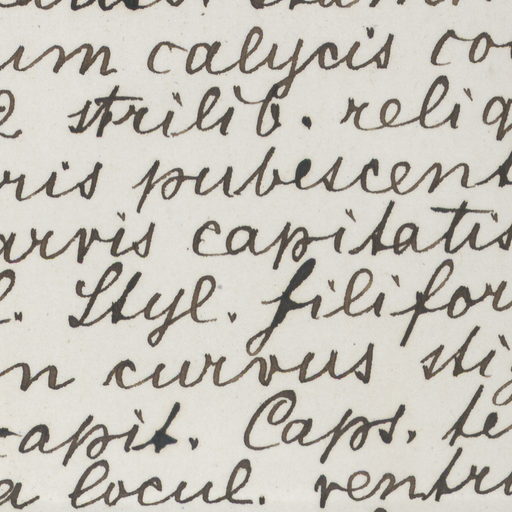 um calycis co
2 strilib. reliq
ris pubescent
arvis capitatis
l. Styl. filifor
n curvus stig
capit. Caps. te
a locul. ventri